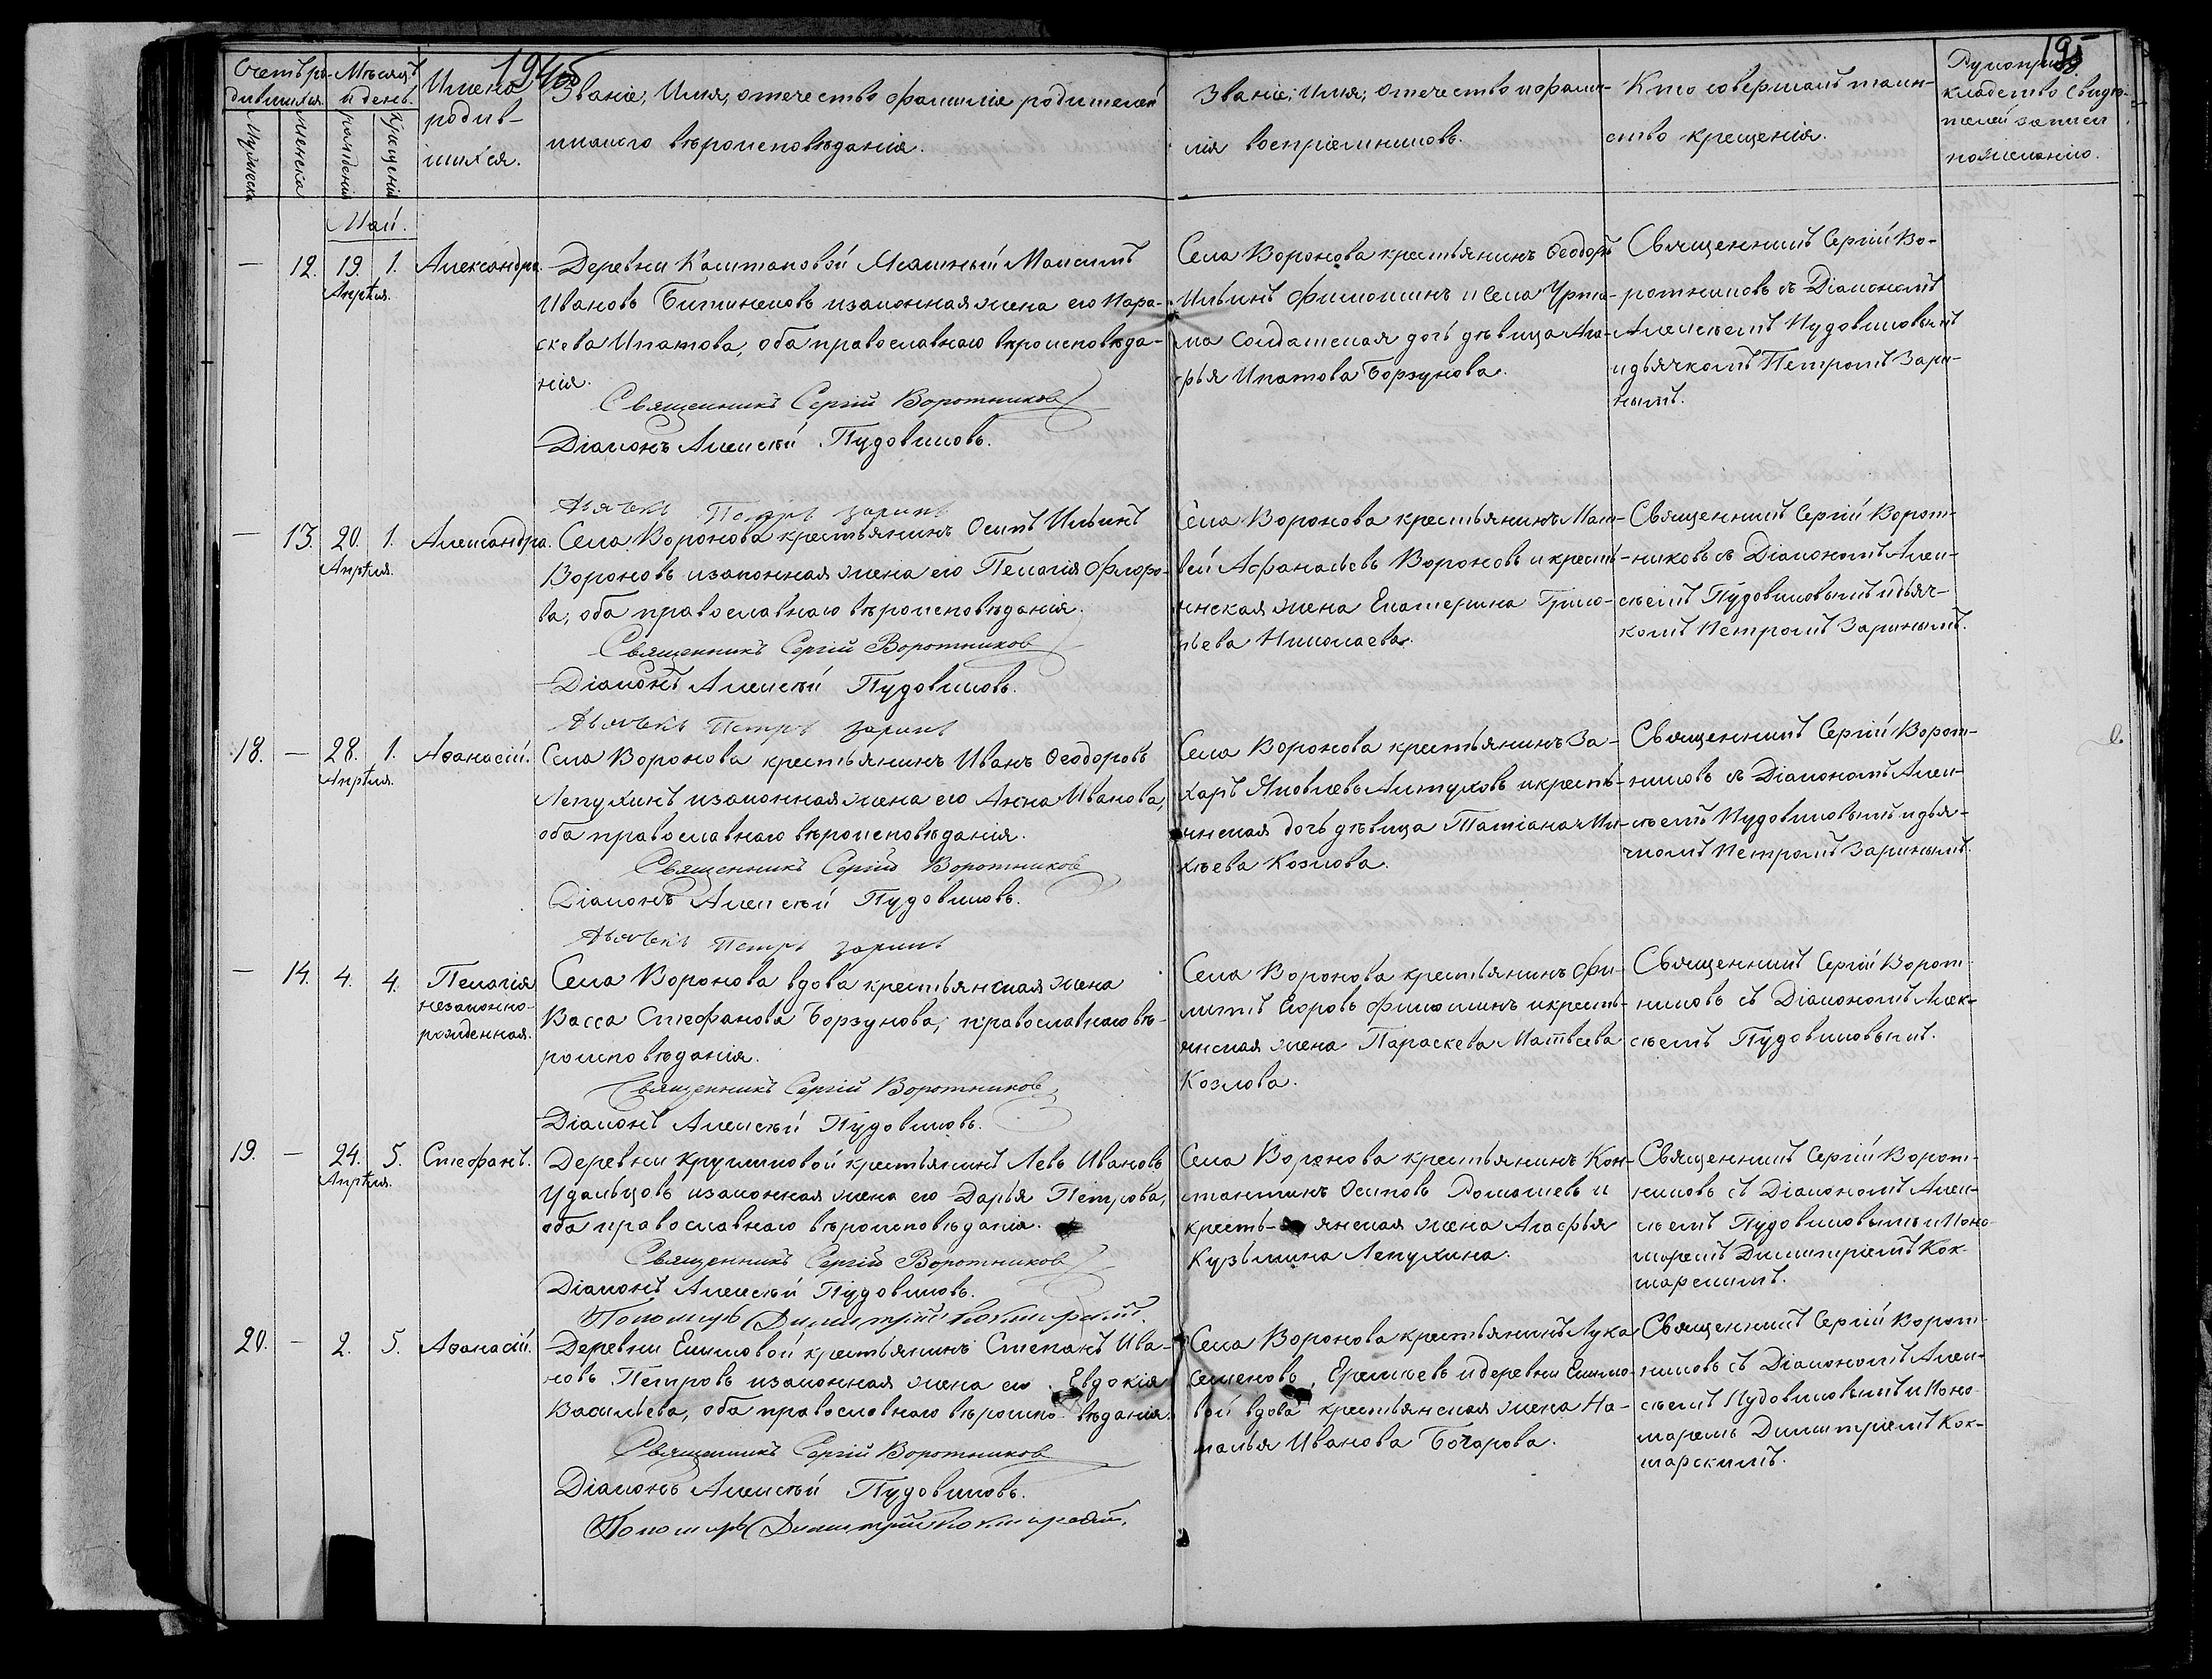 195
Счетъ ро-
дившихся.
Мужеска
Женска
Мѣсяцъ
и день.
рожденія
крещенія
Имена
родив-
шихся.
Званіе, Имя, отечество фамилія родителей
и какого вѣроисповѣданія.
Званіе, Имя, отечество и фами-
лія воспріемниковъ.
Кто совершалъ таин-
ство крещенія.
Рукопри-
кладство свидѣ-
телей записи
по желанію.
Май.
— 12. 19. 1. Александра.
Апрѣля.
Деревни Каштаковой Ясашный Максимъ
Ивановъ и законная жена его Пара-
скева Ипатова, оба православнаго вѣроисповѣда-
нія.
Священникъ Сергій Воротников
Діаконъ Алексѣй Пудовиковъ.
Дьячекъ Петръ Заринъ
Села Воронова крестьянинъ Ѳеодоръ
Ильинъ Филюшинъ и Села Урта-
ма Солдатская дочь дѣвица Ага-
фья Ипатова Борзунова.
Священникъ Сергій Во-
ротниковъ съ Діакономъ
Алексѣемъ Пудовиковымъ
и дьячкомъ Петромъ Зари-
нымъ.
— 13. 20. 1. Александра.
Апрѣля.
Села Воронова крестьянинъ Осипъ Ильинъ
Вороновъ и законная жена его Пелагія Флоро-
ва, оба православнаго вѣроисповѣданія.
Священникъ Сергій Воротников
Діаконъ Алексѣй Пудовиковъ.
Дьячекъ Петръ Заринъ
Села Воронова крестьянинъ Мат-
вей Афанасьевъ Вороновъ и кресть-
янская жена Екатерина
Николаева.
Священникъ Сергій Ворот-
никовъ съ Діакономъ Алек-
сѣемъ Пудовиковымъ и дьяч-
комъ Петромъ Заринымъ.
18. — 28. 1. Аѳанасій.
Апрѣля.
Села Воронова крестьянинъ Иванъ Ѳеодоровъ
Лепухинъ и законная жена его Анна Иванова,
оба православнаго вѣроисповѣданія.
Священникъ Сергій Воротников
Діаконъ Алексѣй Пудовиковъ.
Дьячекъ Петръ Заринъ
Села Воронова крестьянинъ За-
харъ Яковлевъ Алтуховъ и кресть-
янская дочь дѣвица Татіана Ми-
хѣева Козлова.
Священникъ Сергій Ворот-
никовъ съ Діакономъ Алек-
сѣемъ Пудовиковымъ и дья-
чкомъ Петромъ Заринымъ.
— 14. 4. 4. Пелагія
незаконно-
рожденная.
Села Воронова вдова крестьянская жена
Васса Стефанова Борзунова, православнаго вѣ-
роисповѣданія.
Священникъ Сергій Воротников
Діаконъ Алексѣй Пудовиковъ.
Села Воронова крестьянинъ Фи-
липъ Егоровъ Филюшинъ и кресть-
янская жена Параскева Матвѣева
Козлова.
Священникъ Сергій Ворот-
никовъ съ Діакономъ Алек-
сѣемъ Пудовиковымъ.
19. — 24. 5. Стефанъ.
Апрѣля.
Деревни Крутиловой крестьянинъ Левъ Ивановъ
Удальцовъ и законная жена его Дарья Петрова,
оба православнаго вѣроисповѣданія.
Священникъ Сергій Воротников
Діаконъ Алексѣй Пудовиковъ.
Пономарь Димитрій Кокшарскій.
Села Воронова крестьянинъ Кон-
стантинъ Осиповъ Ромашевъ и
кресть-янская жена Агафья
Кузьмина Лепухина.
Священникъ Сергій Ворот-
никовъ съ Діакономъ Алек-
сѣемъ Пудовиковымъ и Поно-
маремъ Димитріемъ Кок-
шарскимъ.
20. — 2. 5. Аѳанасій.
Деревни Екимовой крестьянинъ Степанъ Ива-
новъ Петровъ и законная жена его Евдокія
Васильева, оба православнаго вѣроиспо-вѣданія.
Священникъ Сергій Воротников
Діаконъ Алексѣй Пудовиковъ.
Пономарь Димитрій Кокшарскій.
Села Воронова крестьянинъ Лука
Семеновъ Еремѣевъ и деревни Екимо-
вой вдова крестьянская жена На-
талья Иванова Бочарова.
Священникъ Сергій Ворот-
никовъ съ Діакономъ Алек-
сѣемъ Пудовиковымъ и Поно-
маремъ Димитріемъ Кок-
шарскимъ.